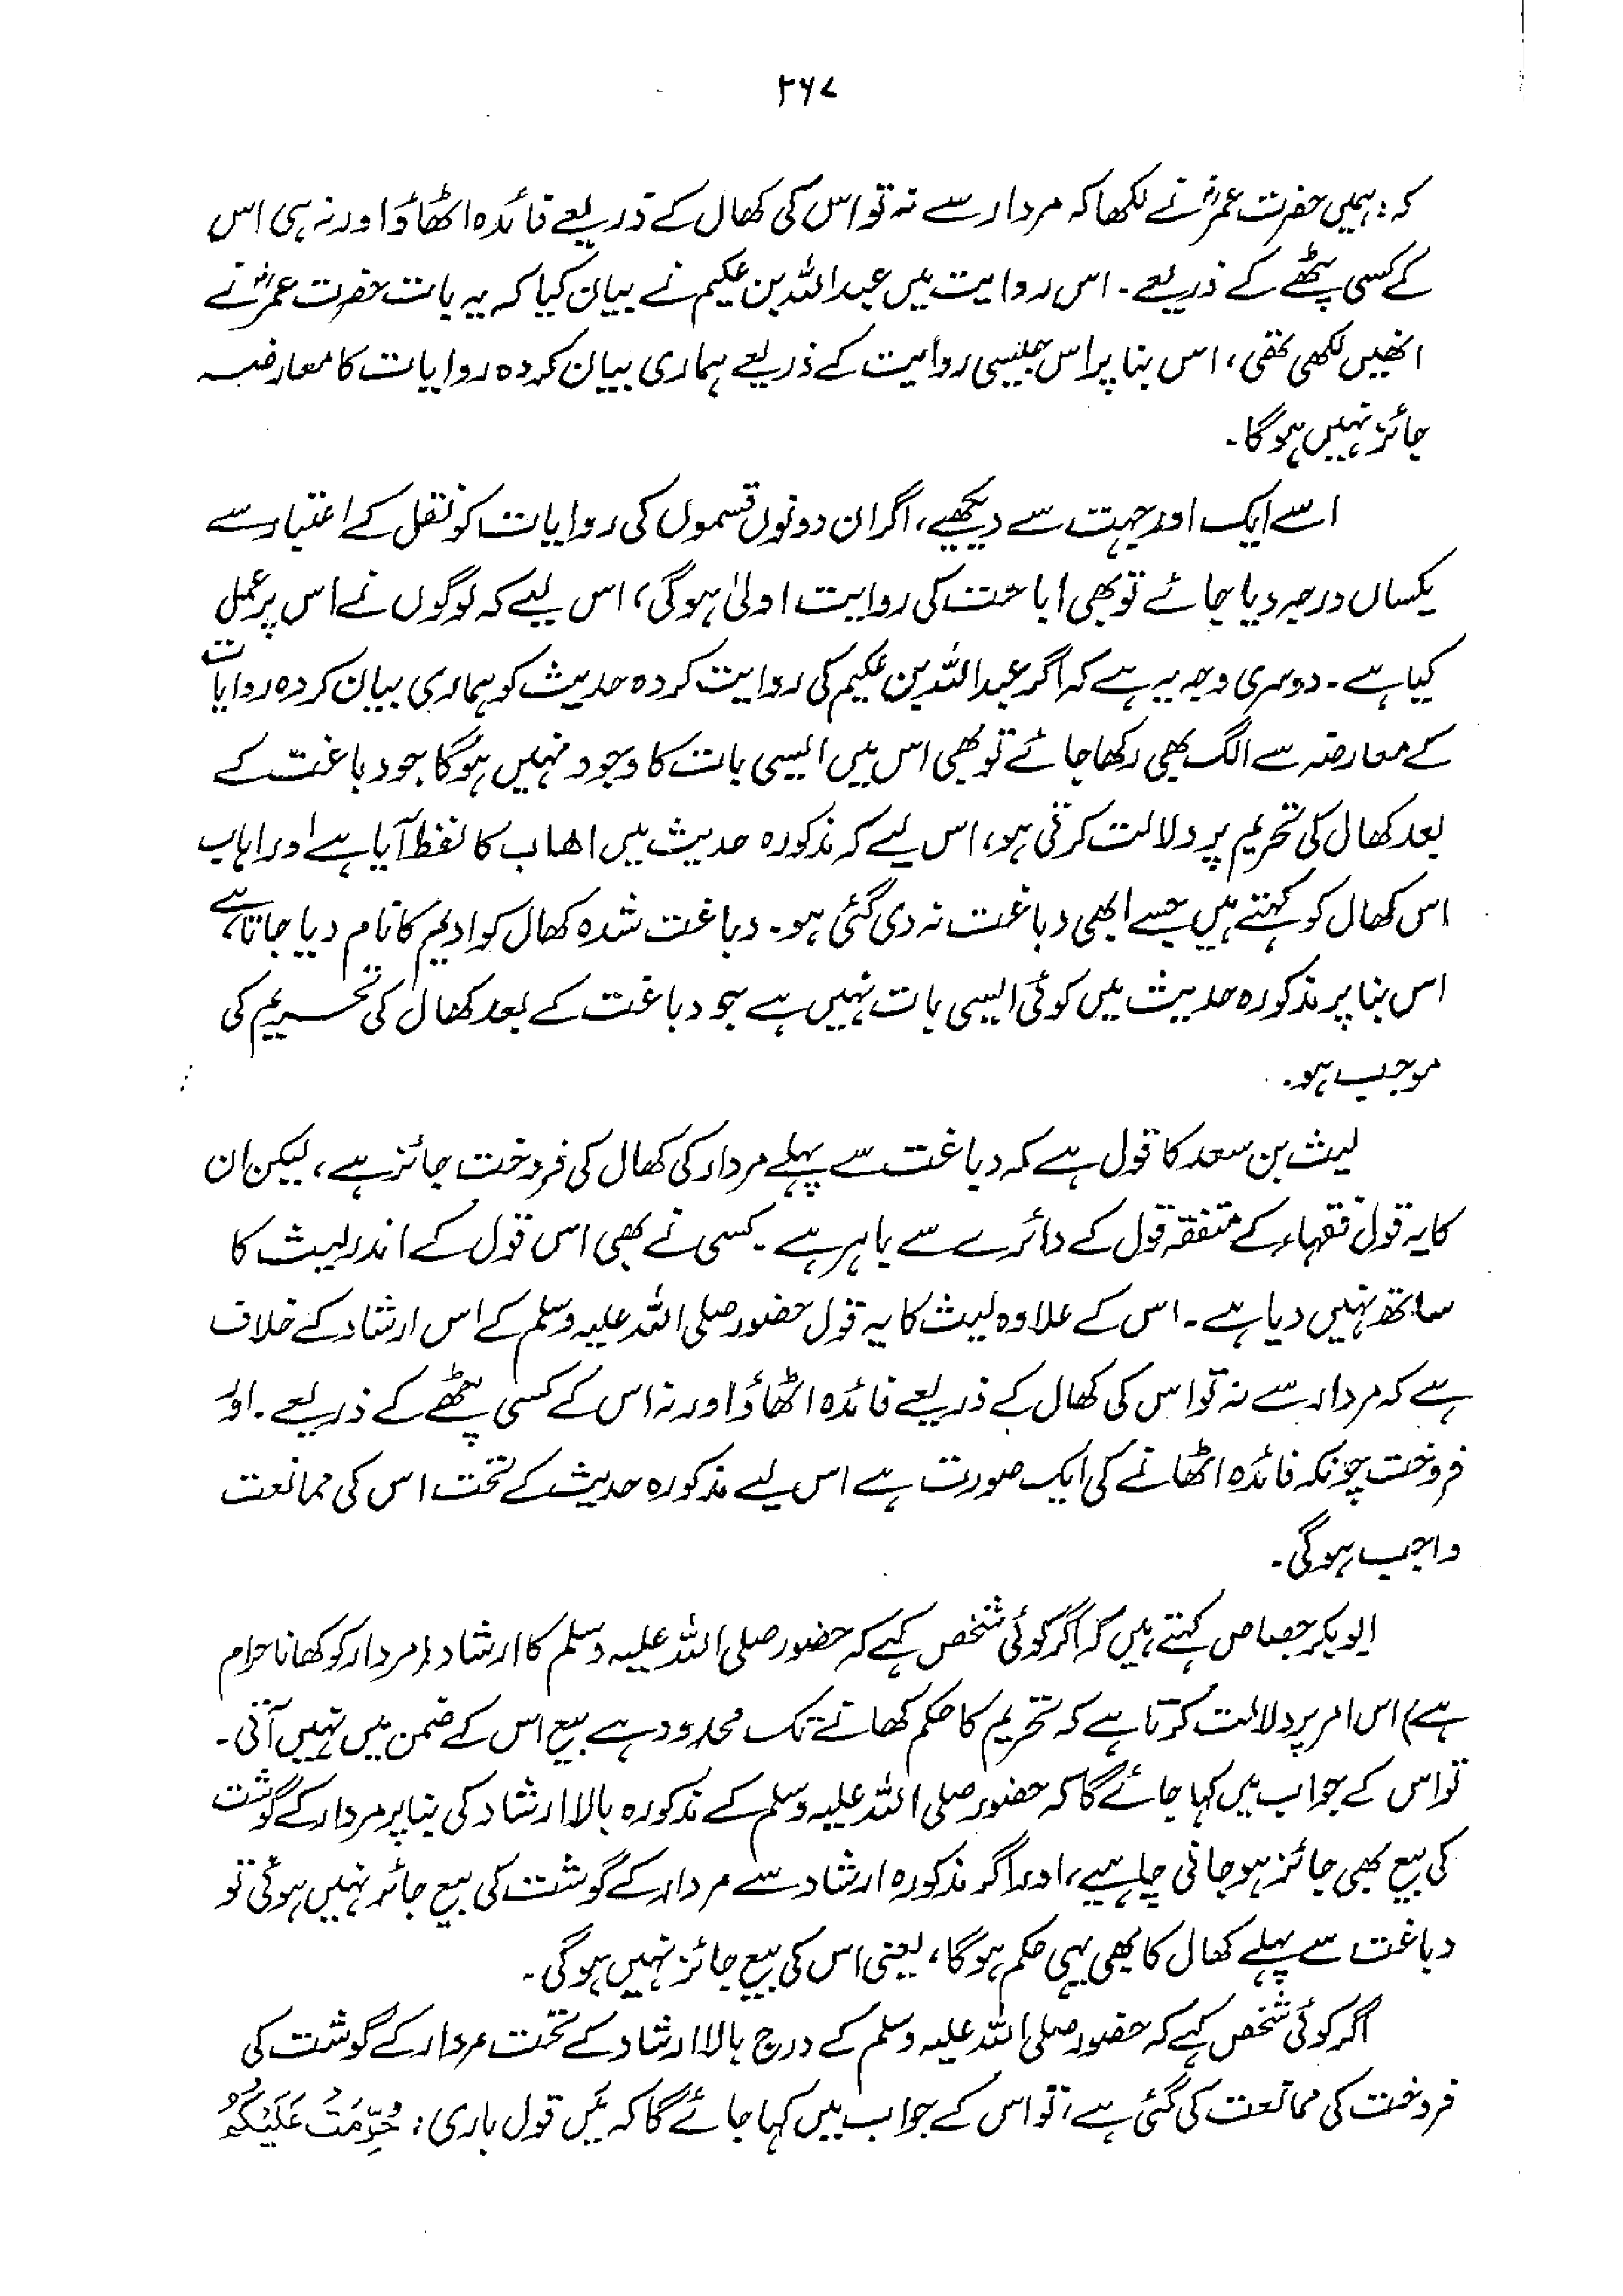 ۲۶۷
کہ: ہمیں حضرت عمرؓ نے لکھا کہ مردار سے نہ تو اس کی کھال کے ذریعے فائدہ اٹھاؤ اور نہ ہی اس
کے کسی پٹھے کے ذریعے۔ اس روایت میں عبداللہ بن عکیم نے بیان کیا کہ یہ بات حضرت عمرؓ نے
انھیں لکھی تھی، اس بنا پر اس جیسی روایت کے ذریعے ہماری بیان کردہ روایات کا معارضہ
جائز نہیں ہوگا۔
اسے ایک اور جہت سے دیکھیے، اگر ان دونوں قسموں کی روایات کو نقل کے اعتبار سے
یکساں درجہ دیا جائے تو بھی اباحت کی روایت اولیٰ ہوگی، اس لیے کہ لوگوں نے اس پر عمل
کیا ہے۔ دوسری وجہ یہ ہے کہ اگر عبداللہ بن عکیم کی روایت کردہ حدیث کو ہماری بیان کردہ روایات
کے معارضہ سے الگ بھی رکھا جائے تو بھی اس میں ایسی بات کا وجود نہیں ہوگا جو دباغت کے
بعد کھال کی تحریم پر دلالت کرتی ہو، اس لیے کہ مذکورہ حدیث میں اھاب کا لفظ آیا ہے اور اہاب
اس کھال کو کہتے ہیں جسے ابھی دباغت نہ دی گئی ہو۔ دباغت شدہ کھال کو ادیم کا نام دیا جاتا ہے
اس بنا پر مذکورہ حدیث میں کوئی ایسی بات نہیں ہے جو دباغت کے بعد کھال کی تحریم کی
موجب ہو۔
لیث بن سعد کا قول ہے کہ دباغت سے پہلے مردار کی کھال کی فروخت جائز ہے، لیکن ان
کا یہ قول فقہاء کے متفقہ قول کے دائرے سے باہر ہے۔ کسی نے بھی اس قول کے اندر لیث کا
ساتھ نہیں دیا ہے۔ اس کے علاوہ لیث کا یہ قول حضور صلی اللہ علیہ وسلم کے اس ارشاد کے خلاف
ہے کہ مردار سے نہ تو اس کی کھال کے ذریعے فائدہ اٹھاؤ اور نہ اس کے کسی پٹھے کے ذریعے۔ اور
فروخت چونکہ فائدہ اٹھانے کی ایک صورت ہے اس لیے مذکورہ حدیث کے تحت اس کی ممانعت
واجب ہوگی۔
ابوبکر جصاص کہتے ہیں کہ اگر کوئی شخص کہے کہ حضور صلی اللہ علیہ وسلم کا ارشاد (مردار کو کھانا حرام
ہے) اس امر پر دلالت کرتا ہے کہ تحریم کا حکم کھانے تک محدود ہے بیع اس کے ضمن میں نہیں آتی۔
تو اس کے جواب میں کہا جائے گا کہ حضور صلی اللہ علیہ وسلم کے مذکورہ بالا ارشاد کی بنا پر مردار کے گوشت
کی بیع بھی جائز ہو جانی چاہیے، اور اگر مذکورہ ارشاد سے مردار کے گوشت کی بیع جائز نہیں ہوئی تو
دباغت سے پہلے کھال کا بھی یہی حکم ہوگا، یعنی اس کی بیع جائز نہیں ہوگی۔
اگر کوئی شخص کہے کہ حضور صلی اللہ علیہ وسلم کے درج بالا ارشاد کے تحت مردار کے گوشت کی
فروخت کی ممانعت کی گئی ہے، تو اس کے جواب میں کہا جائے گا کہ میں قول باری: حُرِّمَتْ عَلَيْكُمُ